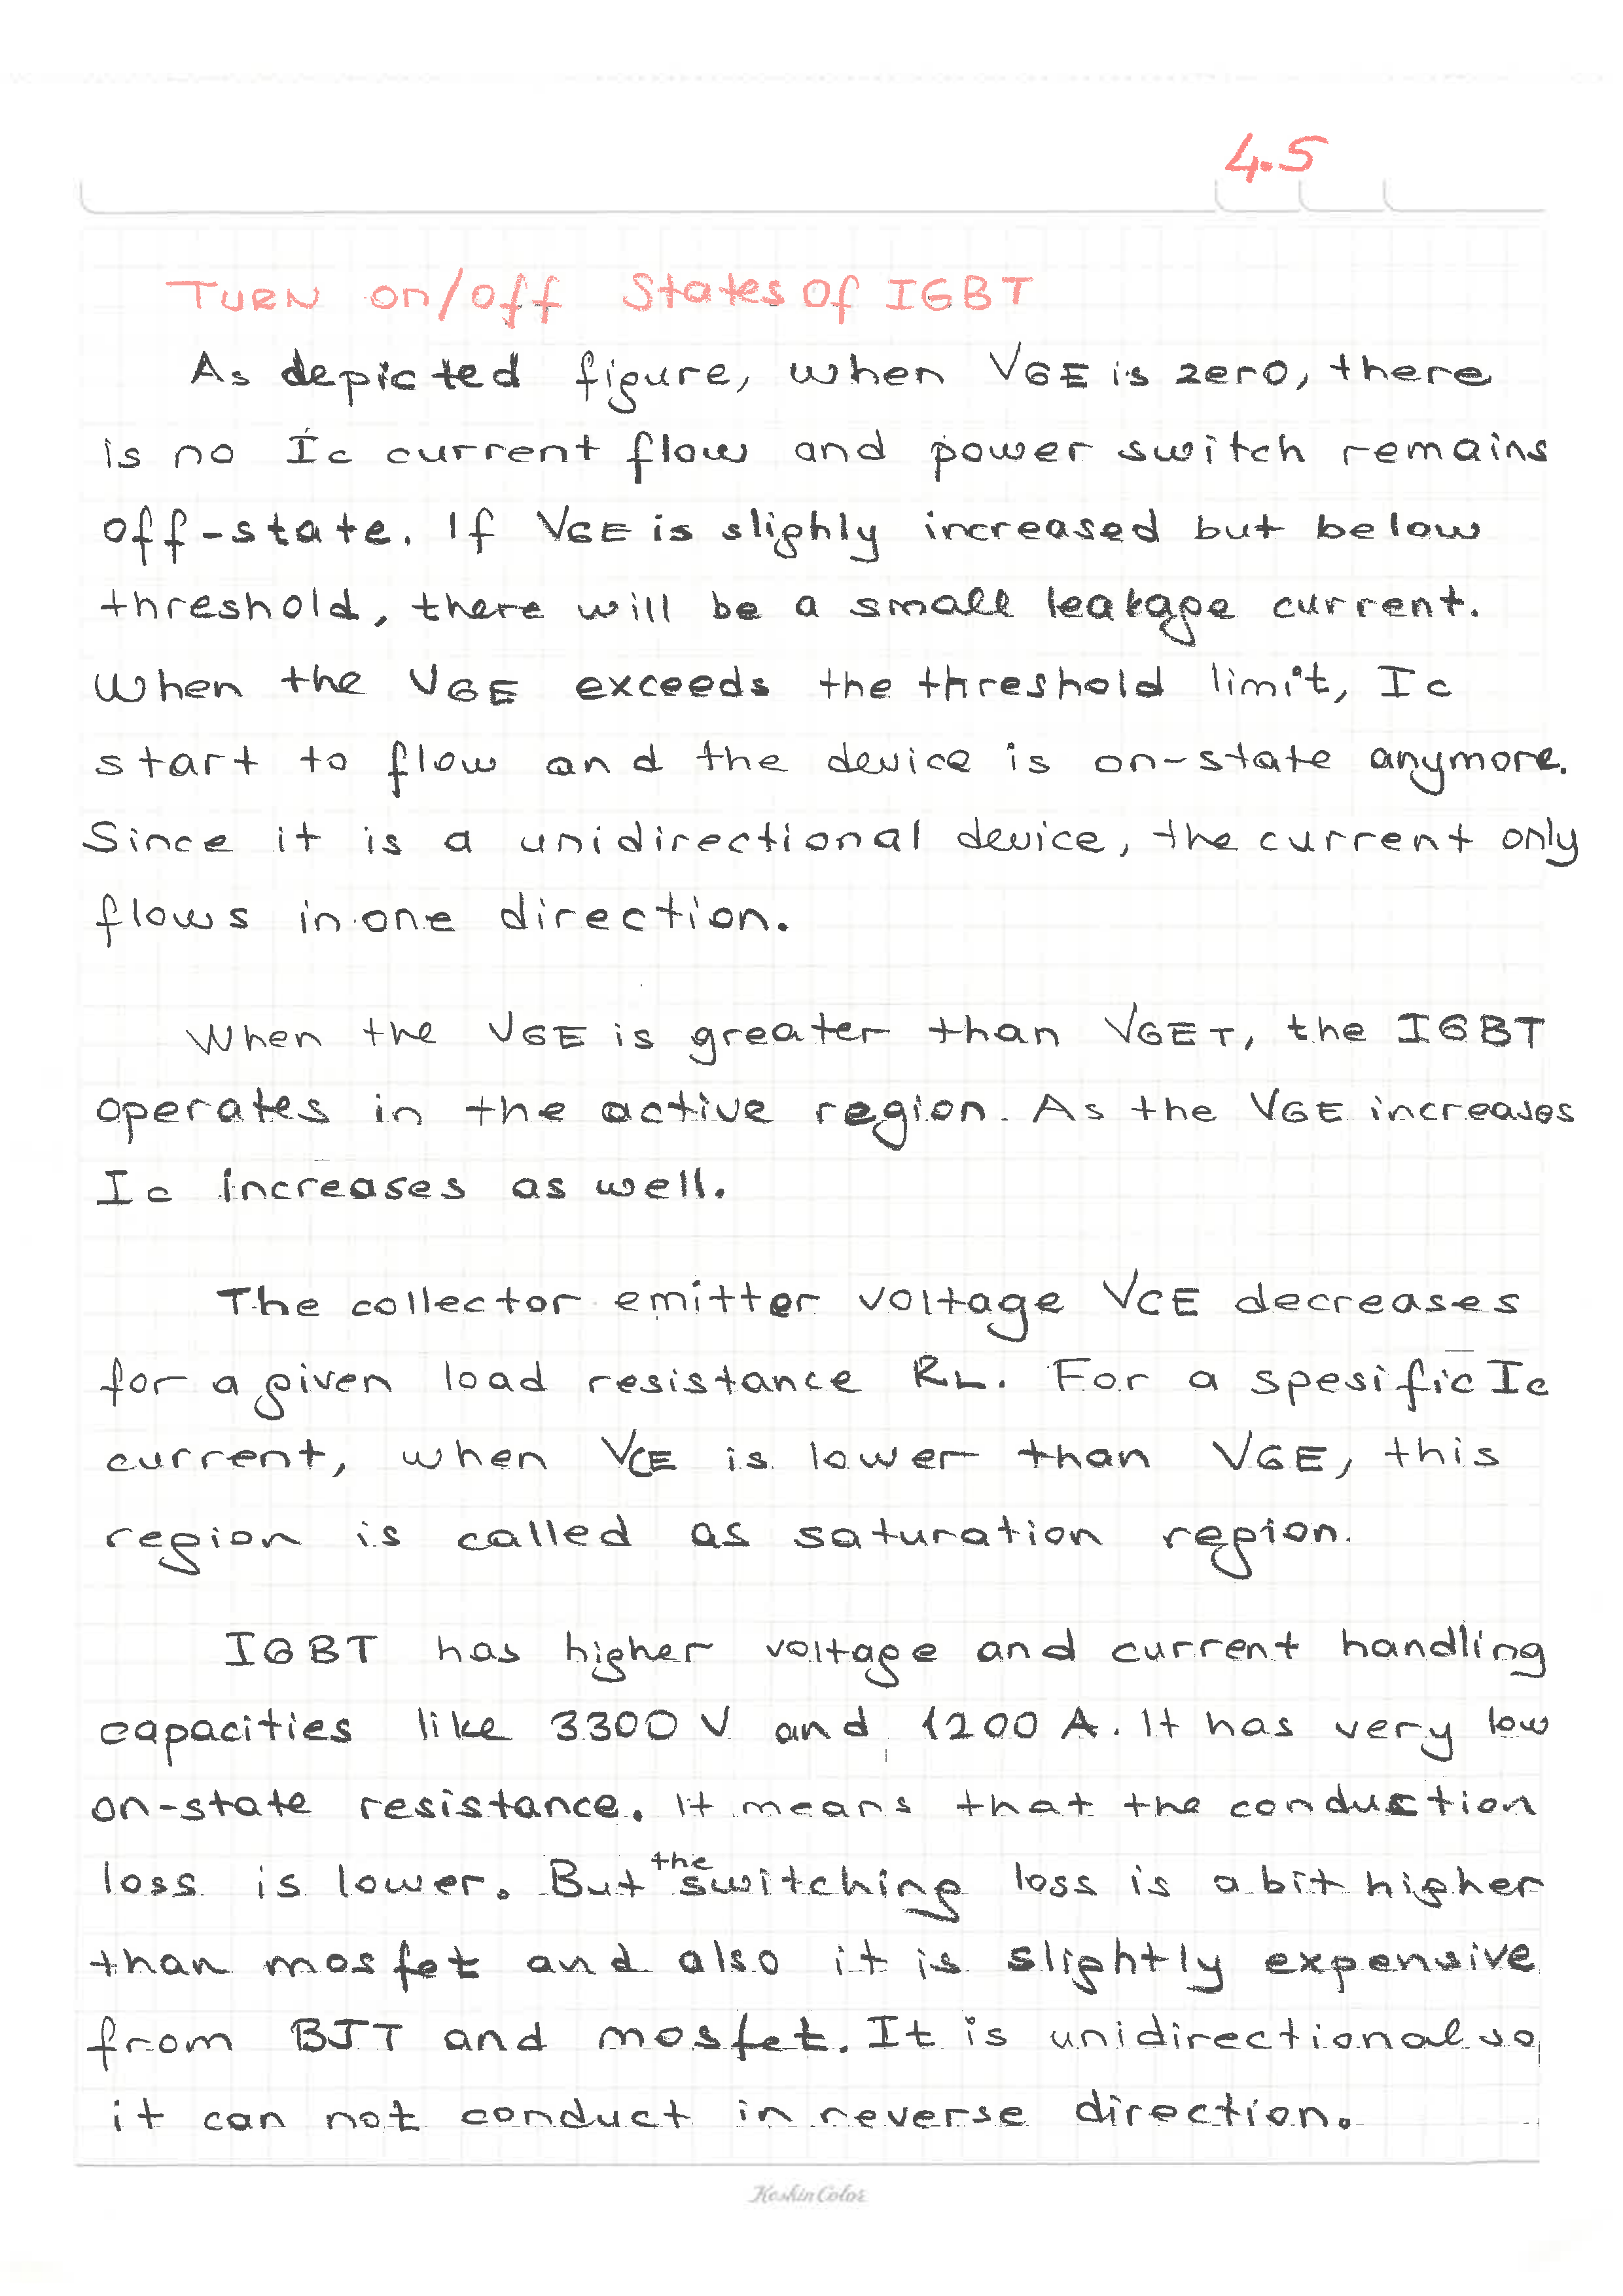 4.5
TURN on/off States of IGBT
As depicted figure, when VGE is zero, there
is no Ic current flow and power switch remains
off-state. If VGE is slighly increased but below
threshold, there will be a small leakage current.
When the VGE exceeds the threshold limit, Ic
start to flow and the device is on-state anymore.
Since it is a unidirectional device, the current only
flows in one direction.
When the VGE is greater than VGET, the IGBT
operates in the active region. As the VGE increases
Ic increases as well.
The collector emitter voltage VCE decreases
for a given load resistance RL. For a spesific Ic
current, when VCE is lower than VGE, this
region is called as saturation region.
IGBT has higher voltage and current handling
capacities like 3300 V and 1200 A. It has very low
on-state resistance. It means that the conduction
loss is lower. But the switching loss is a bit higher
than mosfet and also it is slightly expensive
from BJT and mosfet. It is unidirectional so
it can not conduct in reverse direction.
Keskin Color